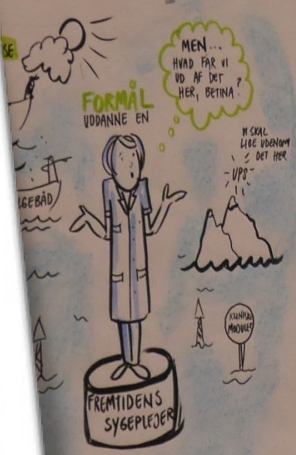 MEN...
HVAD FÅR VI
UD AF DET
HER, BETINA?
FORMÅL
UDDANNE EN
VI SKAL
LIGE UDENOM
DET HER
-UPS-
FREMTIDENS
SYGEPLEJER